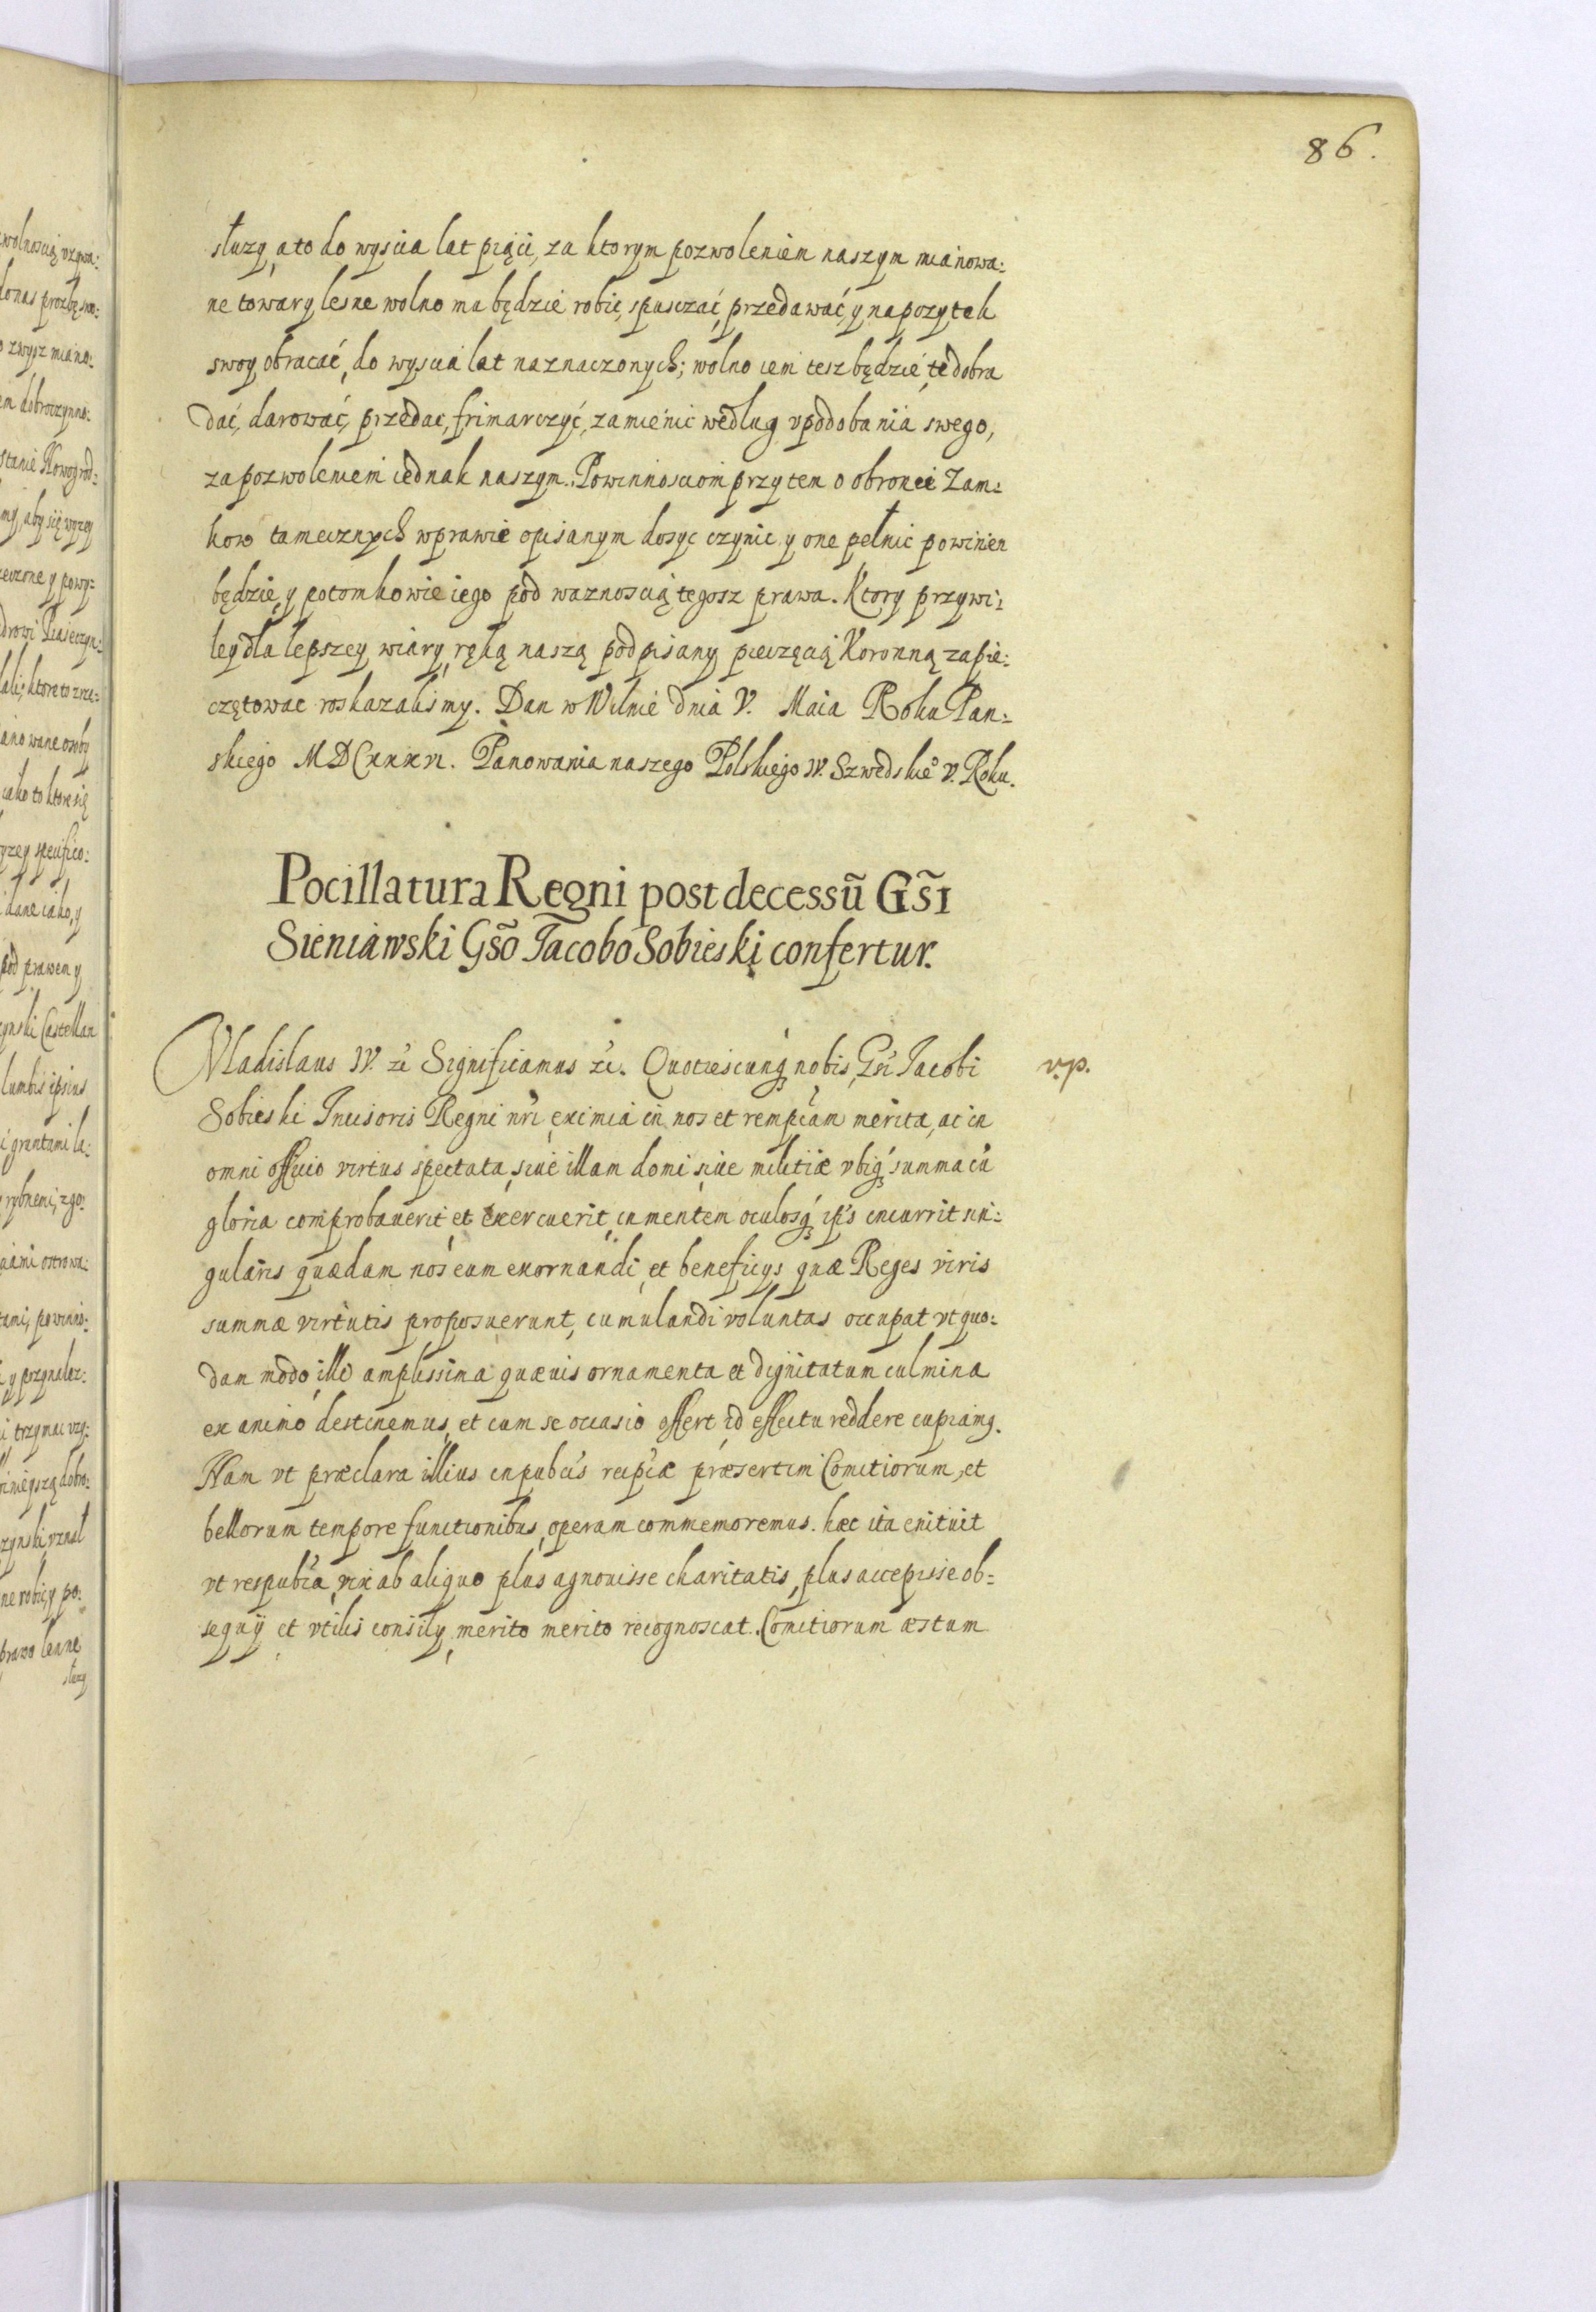 86.
słuzy, a to do wyscia lat piąci, za ktorym pozwolenien naszym mianowa:
ne towary lesne wolno mu będzie robic, spusczać, przedawać, y na pozytek
swoy obracać, do wyscia lat naznaczonych; wolno iem tesz będzie, te dobra
dać, darować, przedac, frimarczyć, zamienic według vpodobania swego,
za pozwoleniem iednak naszym. Powinnosciom przytem o obronie Zam:
kow tamecznych w prawie opisanym dosyc czynic y one pełnic powinien
będzie, y potomkowie iego pod waznoscią tegosz prawa. Ktory przywi:
ley dla lepszey wiary, ręką naszą podpisany pieczęcią Koronną zapie:
czętowac roskazalismy. Dan w Wilnie dnia V. Maia Roku Pan:
skiego MDCxxxvi. Panowania naszego Polskiego IV. Szwedskieo V. Roku.
Pocillatura Regni post decessũ Gs̃i
Sieniawski Gs̃o Jacobo Sobieski confertur.
Vladislaus IV. zc Significamus zc. Quotiescunq nobis, Gsi Jacobi
v.p.
Sobieski Incisoris Regni nri, eximia in nos et rempcam merita, ac in
omni officio virtus spectata, siue illam domi, siue militiæ vbiq summa cũ
gloria comprobauerit et exercuerit, in mentem oculosq ipis incurrit sin:
gularis quædam nos eum exornandi, et beneficys quæ Reges viris
summæ virtutis proposuerunt, cumulandi voluntas occupat vt quo:
dam modo, illi amplissima quæuis ornamenta et dignitatum culmina
ex animo destinemus, et cum se occasio offert id effectu reddere cupiamq.
Nam vt præclara illius in pubcis reipcæ præsertim Comitiorum, et
bellorum tempore functionibus, operam commemoremus. hæc ita enituit
vt respubca, vix ab aliquo plus agnouisse charitatis, plus accepisse ob:
sequÿ et vtilis consily, merito merito recognoscat. Comitiorum æstum